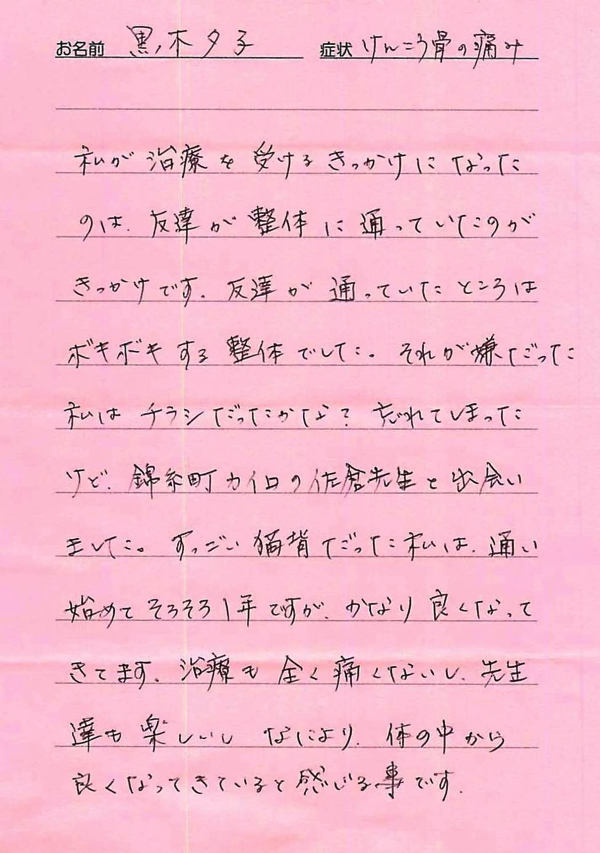 お名前 黒木夕子 症状 けんこう骨の痛み
私が治療を受けるきっかけになった
のは、友達が整体に通っていたのが
きっかけです。友達が通っていたところは
ボキボキする整体でした。それが嫌だった
私はチラシだったかな?忘れてしまった
けど、錦糸町カイロの佐倉先生と出会い
ました。すっごい猫背だった私は、通い
始めてそろそろ1年ですが、かなり良くなって
きてます。治療も全く痛くないし、先生
達も楽しいし なにより、体の中から
良くなってきていると感じる事です。